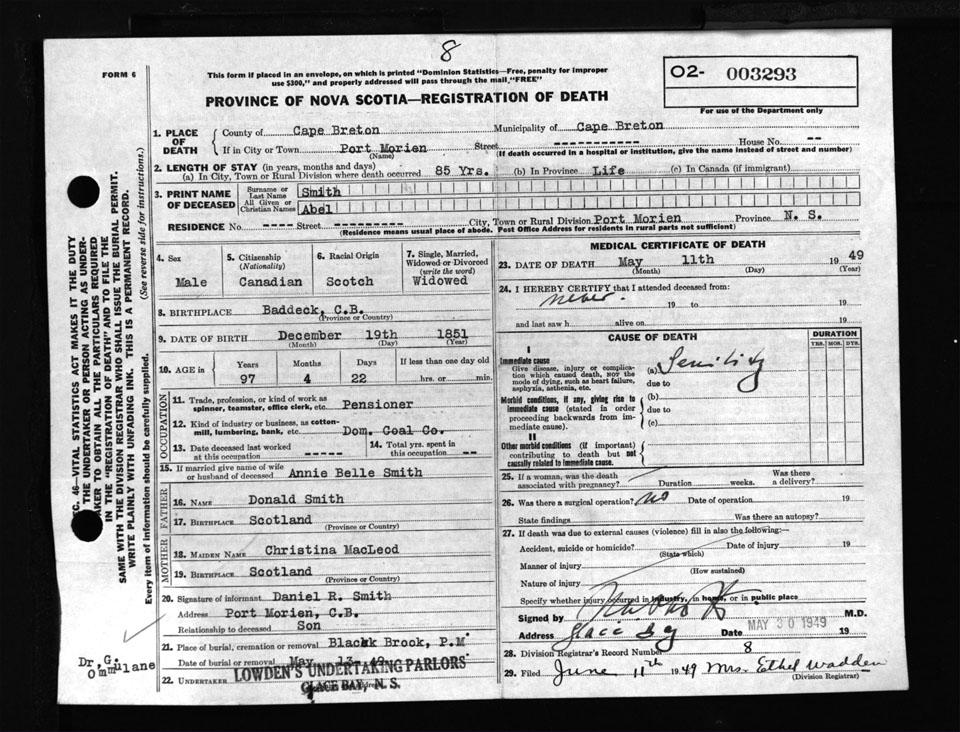 8
FORM 6
This form if placed in an envelope, on which is printed "Dominion Statistics—Free, penalty for improper
use $300," and properly addressed will pass through the mail, "FREE"
PROVINCE OF NOVA SCOTIA—REGISTRATION OF DEATH
O2- 003293
For use of the Department only
SEC. 46—VITAL STATISTICS ACT MAKES IT THE DUTY
OF THE UNDERTAKER OR PERSON ACTING AS UNDER-
TAKER TO OBTAIN ALL THE PARTICULARS REQUIRED
IN THE "REGISTRATION OF DEATH" AND TO FILE THE
SAME WITH THE DIVISION REGISTRAR WHO SHALL ISSUE THE BURIAL PERMIT.
WRITE PLAINLY WITH UNFADING INK. THIS IS A PERMANENT RECORD.
Every item of information should be carefully supplied. (See reverse side for instructions.)
1. PLACE OF DEATH
County of Cape Breton Municipality of Cape Breton
If in City or Town Port Morien Street ----------- House No. --
(Name) (If death occurred in a hospital or institution, give the name instead of street and number)
2. LENGTH OF STAY (in years, months and days)
(a) In City, Town or Rural Division where death occurred 85 Yrs. (b) In Province Life (c) In Canada (if immigrant)
3. PRINT NAME OF DECEASED
Surname or Last Name Smith
All Given or Christian Names Abel
RESIDENCE No. ---- Street ---- City, Town or Rural Division Port Morien Province N. S.
(Residence means usual place of abode. Post Office Address for residents in rural parts not sufficient)
4. Sex Male
5. Citizenship (Nationality) Canadian
6. Racial Origin Scotch
7. Single, Married, Widowed or Divorced (write the word) Widowed
8. BIRTHPLACE Baddeck, C.B.
(Province or Country)
9. DATE OF BIRTH December 19th 1851
(Month) (Day) (Year)
10. AGE in Years Months Days If less than one day old
97 4 22 hrs. or min.
OCCUPATION
11. Trade, profession, or kind of work as
spinner, teamster, office clerk, etc. Pensioner
12. Kind of industry or business, as cotton-
mill, lumbering, bank, etc. Dom. Coal Co.
13. Date deceased last worked at this occupation -----
14. Total yrs. spent in this occupation --
15. If married give name of wife
or husband of deceased Annie Belle Smith
FATHER
16. NAME Donald Smith
17. BIRTHPLACE Scotland
(Province or Country)
MOTHER
18. MAIDEN NAME Christina MacLeod
19. BIRTHPLACE Scotland
(Province or Country)
20. Signature of informant Daniel R. Smith
Address Port Morien, C.B.
Relationship to deceased Son
21. Place of burial, cremation or removal Black Brook, P.M
Date of burial or removal May 13-49
22. UNDERTAKER LOWDEN'S UNDERTAKING PARLORS
GLACE BAY, N. S.
MEDICAL CERTIFICATE OF DEATH
23. DATE OF DEATH May 11th 1949
(Month) (Day) (Year)
24. I HEREBY CERTIFY that I attended deceased from:
never. 19 to 19
and last saw h alive on 19
CAUSE OF DEATH
DURATION
YRS. MOS. DYS.
I
Immediate cause
Give disease, injury or complica-
tion which caused death, NOT the
mode of dying, such as heart failure,
asphyxia, asthenia, etc.
(a) Senility
due to
Morbid conditions, if any, giving rise to
immediate cause (stated in order
proceeding backwards from im-
mediate cause).
(b)
due to
(c)
II
Other morbid conditions (if important)
contributing to death but not
causally related to immediate cause.
25. If a woman, was the death
associated with pregnancy? Duration weeks. Was there a delivery?
26. Was there a surgical operation? no Date of operation 19
State findings Was there an autopsy?
27. If death was due to external causes (violence) fill in also the following:—
Accident, suicide or homicide? Date of injury 19
(State which)
Manner of injury
(How sustained)
Nature of injury
Specify whether injury occurred in industry, in home, or in public place
Signed by M.D.
Address Glace Bay Date MAY 30 1949 19
28. Division Registrar's Record Number 8
29. Filed June 11th 1949 Mrs. Ethel Wadden
(Division Registrar)
Dr. G.